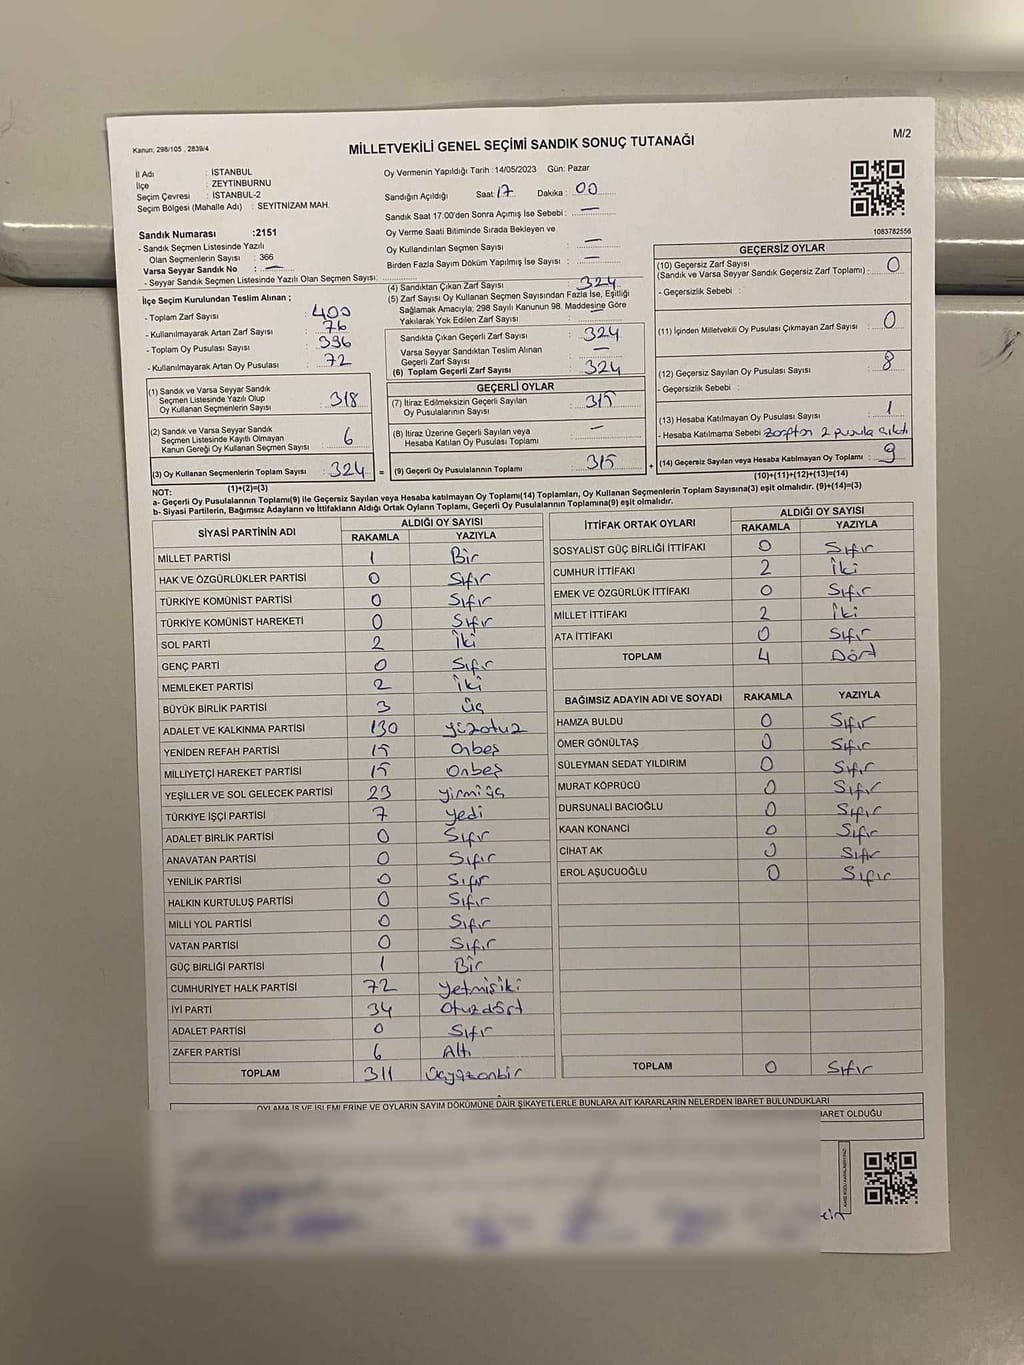 Kanun: 298/105 , 2839/4
MİLLETVEKİLİ GENEL SEÇİMİ SANDIK SONUÇ TUTANAĞI
M/2
İl Adı : İSTANBUL
İlçe : ZEYTİNBURNU
Seçim Çevresi : İSTANBUL-2
Seçim Bölgesi (Mahalle Adı) : SEYİTNİZAM MAH.
Sandık Numarası :2151
- Sandık Seçmen Listesinde Yazılı
Olan Seçmenlerin Sayısı : 366
Varsa Seyyar Sandık No : —
- Seyyar Sandık Seçmen Listesinde Yazılı Olan Seçmen Sayısı:
İlçe Seçim Kurulundan Teslim Alınan ;
- Toplam Zarf Sayısı : 400
- Kullanılmayarak Artan Zarf Sayısı : 76
- Toplam Oy Pusulası Sayısı : 396
- Kullanılmayarak Artan Oy Pusulası : 72
(1) Sandık ve Varsa Seyyar Sandık
Seçmen Listesinde Yazılı Olup
Oy Kullanan Seçmenlerin Sayısı : 318
(2) Sandık ve Varsa Seyyar Sandık
Seçmen Listesinde Kayıtlı Olmayan
Kanun Gereği Oy Kullanan Seçmen Sayısı : 6
(3) Oy Kullanan Seçmenlerin Toplam Sayısı : 324 =
(1)+(2)=(3)
Oy Vermenin Yapıldığı Tarih : 14/05/2023 Gün: Pazar
Sandığın Açıldığı Saat: 17 Dakika : 00
Sandık Saat 17:00'den Sonra Açımış İse Sebebi : —
Oy Verme Saati Bitiminde Sırada Bekleyen ve
Oy Kullandırılan Seçmen Sayısı : —
Birden Fazla Sayım Döküm Yapılmış İse Sayısı : —
(4) Sandıktan Çıkan Zarf Sayısı : 324
(5) Zarf Sayısı Oy Kullanan Seçmen Sayısından Fazla İse, Eşitliği
Sağlamak Amacıyla; 298 Sayılı Kanunun 98. Maddesine Göre
Yakılarak Yok Edilen Zarf Sayısı :
Sandıkta Çıkan Geçerli Zarf Sayısı : 324
Varsa Seyyar Sandıktan Teslim Alınan
Geçerli Zarf Sayısı : —
(6) Toplam Geçerli Zarf Sayısı : 324
GEÇERLİ OYLAR
(7) İtiraz Edilmeksizin Geçerli Sayılan
Oy Pusulalarının Sayısı : 315
(8) İtiraz Üzerine Geçerli Sayılan veya
Hesaba Katılan Oy Pusulası Toplamı : —
(9) Geçerli Oy Pusulalarının Toplamı : 315 +
1083782556
GEÇERSİZ OYLAR
(10) Geçersiz Zarf Sayısı
(Sandık ve Varsa Seyyar Sandık Geçersiz Zarf Toplamı) : 0
- Geçersizlik Sebebi :
(11) İçinden Milletvekili Oy Pusulası Çıkmayan Zarf Sayısı : 0
(12) Geçersiz Sayılan Oy Pusulası Sayısı : 8
- Geçersizlik Sebebi :
(13) Hesaba Katılmayan Oy Pusulası Sayısı : 1
- Hesaba Katılmama Sebebi zarftan 2 pusula çıktı
(14) Geçersiz Sayılan veya Hesaba Katılmayan Oy Toplamı : 9
(10)+(11)+(12)+(13)=(14)
NOT:
a- Geçerli Oy Pusulalarının Toplamı(9) ile Geçersiz Sayılan veya Hesaba katılmayan Oy Toplamı(14) Toplamları, Oy Kullanan Seçmenlerin Toplam Sayısına(3) eşit olmalıdır. (9)+(14)=(3)
b- Siyasi Partilerin, Bağımsız Adayların ve İttifakların Aldığı Ortak Oyların Toplamı, Geçerli Oy Pusulalarının Toplamına(9) eşit olmalıdır.
SİYASİ PARTİNİN ADI ALDIĞI OY SAYISI
RAKAMLA YAZIYLA
MİLLET PARTİSİ 1 Bir
HAK VE ÖZGÜRLÜKLER PARTİSİ 0 Sıfır
TÜRKİYE KOMÜNİST PARTİSİ 0 Sıfır
TÜRKİYE KOMÜNİST HAREKETİ 0 Sıfır
SOL PARTİ 2 İki
GENÇ PARTİ 0 Sıfır
MEMLEKET PARTİSİ 2 İki
BÜYÜK BİRLİK PARTİSİ 3 Üç
ADALET VE KALKINMA PARTİSİ 130 yüzotuz
YENİDEN REFAH PARTİSİ 15 Onbeş
MİLLİYETÇİ HAREKET PARTİSİ 15 Onbeş
YEŞİLLER VE SOL GELECEK PARTİSİ 23 yirmiüç
TÜRKİYE İŞÇİ PARTİSİ 7 yedi
ADALET BİRLİK PARTİSİ 0 Sıfır
ANAVATAN PARTİSİ 0 Sıfır
YENİLİK PARTİSİ 0 Sıfır
HALKIN KURTULUŞ PARTİSİ 0 Sıfır
MİLLİ YOL PARTİSİ 0 Sıfır
VATAN PARTİSİ 0 Sıfır
GÜÇ BİRLİĞİ PARTİSİ 1 Bir
CUMHURİYET HALK PARTİSİ 72 yetmişiki
İYİ PARTİ 34 Otuzdört
ADALET PARTİSİ 0 Sıfır
ZAFER PARTİSİ 6 Altı
TOPLAM 311 Üçyüzonbir
İTTİFAK ORTAK OYLARI ALDIĞI OY SAYISI
RAKAMLA YAZIYLA
SOSYALİST GÜÇ BİRLİĞİ İTTİFAKI 0 Sıfır
CUMHUR İTTİFAKI 2 İki
EMEK VE ÖZGÜRLÜK İTTİFAKI 0 Sıfır
MİLLET İTTİFAKI 2 İki
ATA İTTİFAKI 0 Sıfır
TOPLAM 4 Dört
BAĞIMSIZ ADAYIN ADI VE SOYADI RAKAMLA YAZIYLA
HAMZA BULDU 0 Sıfır
ÖMER GÖNÜLTAŞ 0 Sıfır
SÜLEYMAN SEDAT YILDIRIM 0 Sıfır
MURAT KÖPRÜCÜ 0 Sıfır
DURSUNALİ BACIOĞLU 0 Sıfır
KAAN KONANCİ 0 Sıfır
CİHAT AK 0 Sıfır
EROL AŞUCUOĞLU 0 Sıfır
TOPLAM 0 Sıfır
OYLAMA İŞ VE İŞLEMLERİNE VE OYLARIN SAYIM DÖKÜMÜNE DAİR ŞİKAYETLERLE BUNLARA AİT KARARLARIN NELERDEN İBARET BULUNDUKLARI
BARET OLDUĞU